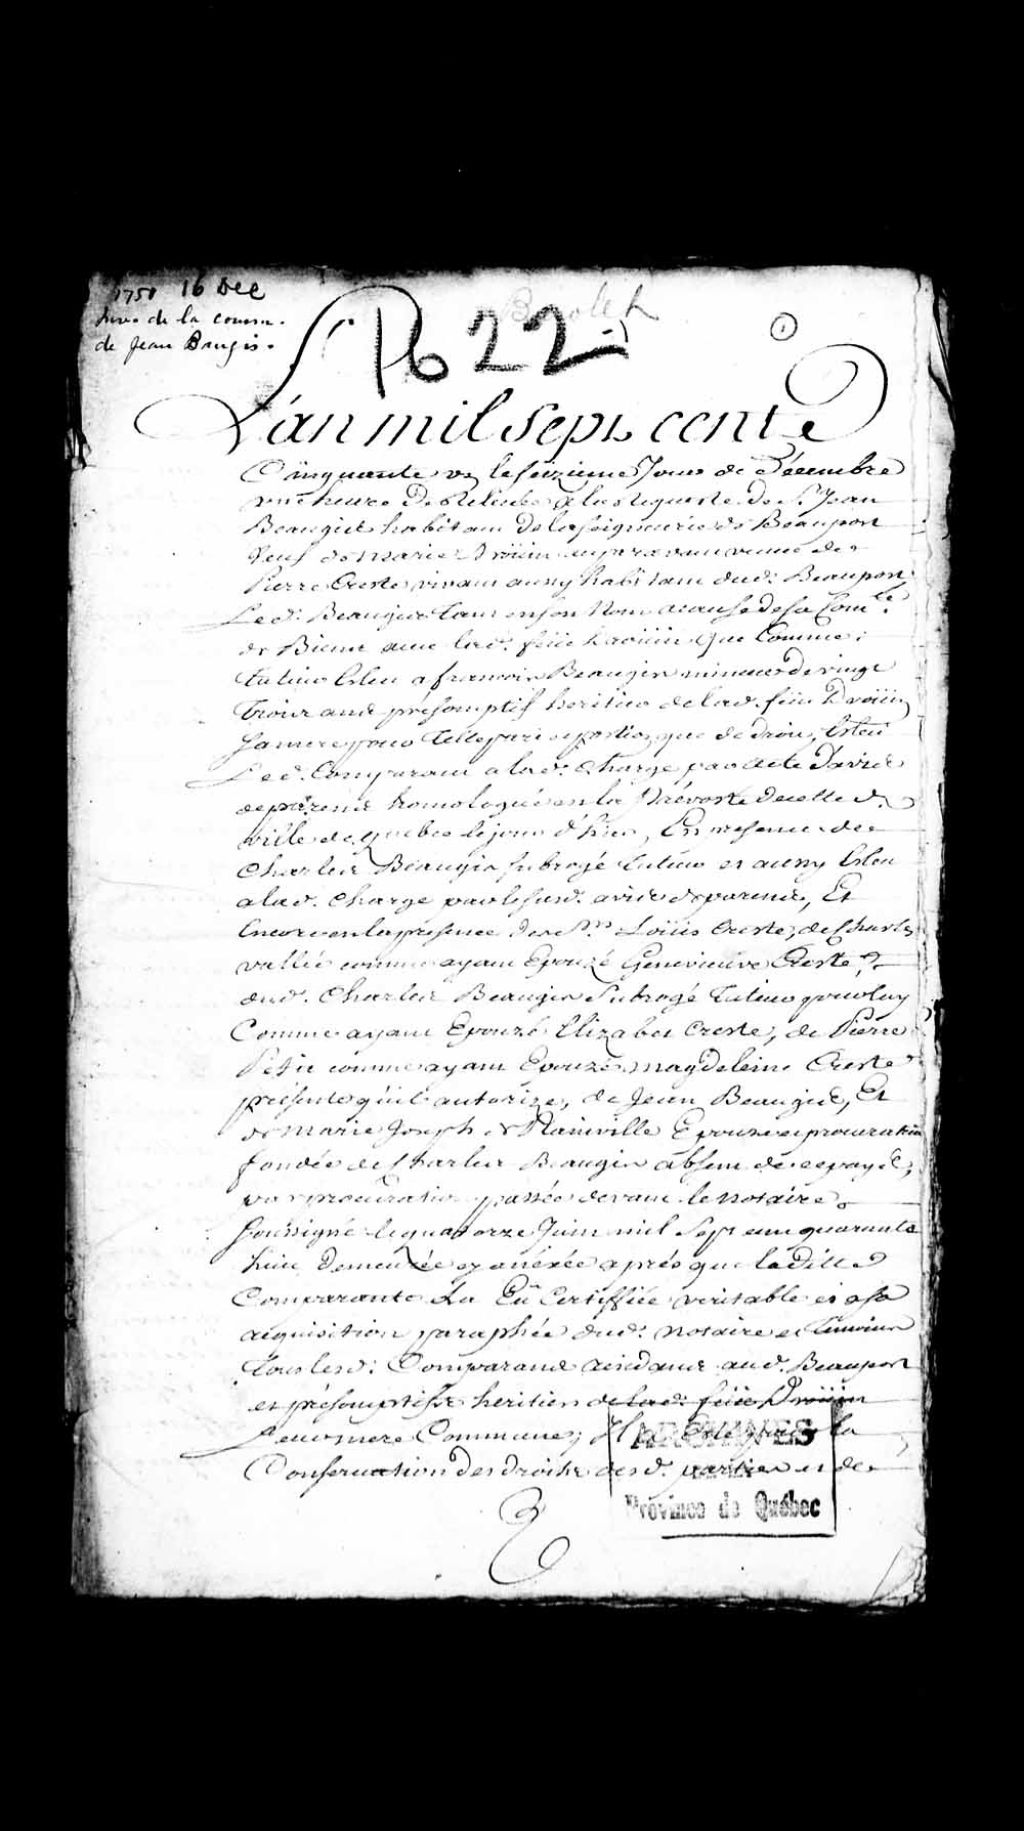 1751 16 Dec
Inv. de la comm.
de Jean Baugis.
Barolet
P 622
1
L'an mil sept cent
Cinquante un le seizieme Jour de Decembre
une heure de Relevée a la Requeste de Sr. Jean
Beaugis habitant de la seigneurie de Beauport
Veuf de Marie Droüin auparavant veuve de
Pierre Creste vivant aussy habitant dud. Beauport
Led. Beaugis tant en son Nom acause de sa Com.té
de Biens avec lad. feüe Droüin que Comme
tuteur Esleu a francois Beaugis mineur de vingt
trois ans présomptif heritier de lad. feüe Droüin
sa mere pour telle part et portion que de droit, Esleu
Led. Comparant a lad. Charge par acte D'avis
de parens homologué en la Prévosté de cette d.
ville de quebec le jour d'hier, En presence de
Charles Beaugis subrogé tuteur et aussy Esleu
a lad. Charge par le susd. avis de parens, Et
Encore en la presence des Srs. Loüis Creste, de Charles
vallée comme ayant Epouzé Geneviéve Creste,
dud. Charles Beaugis Subrogé tuteur pour luy
Comme ayant Epouzé Elizabet Creste, de Pierre
Petit comme ayant Epouzé magdeleine Creste
présente qu'il autorize, de Jean Beaugis, Et
de marie Joseph Rainville Epouse et procuratrice
fondée de Charles Beaugis absent de ce payis,
par procuration passée devant le notaire
soussigné le quatorze Juin mil sept cent quarante
huit demeurée annéxée aprés que laditte
Comparante La Eu Certiffiée veritable et a sa
réquisition paraphée dud. notaire et témoins
tous lesd. Comparans residans aud. Beauport
et présomptifs heritiers de lad. feüe Droüin
Leur mere Commune; pour la
Conservation des droits desd. parties et de
ARCHIVES
Province de Québec